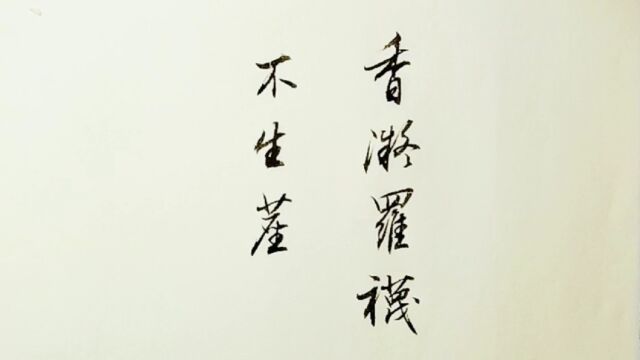 香凝羅襪
不生塵